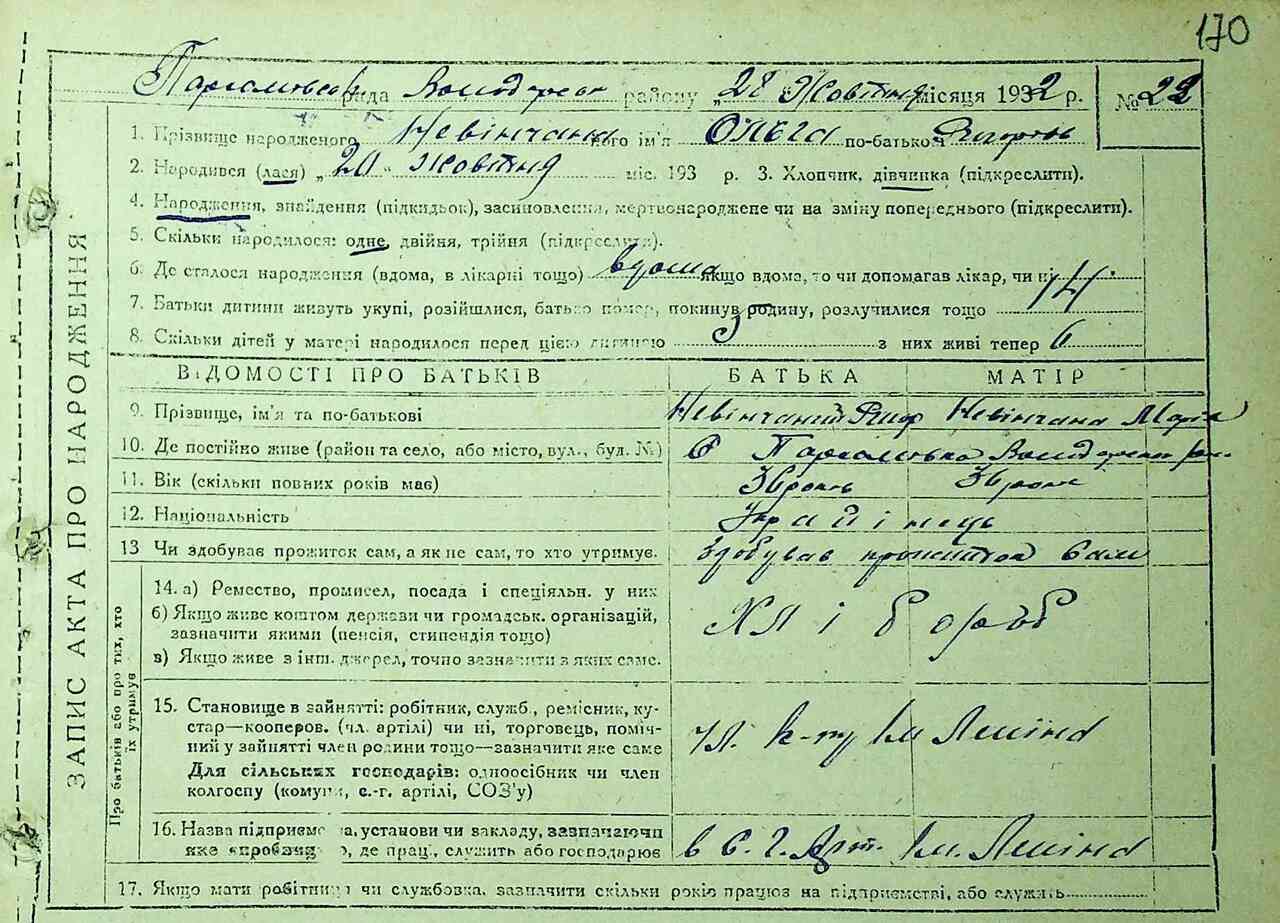 170
рада району "28" Жовтня місяця 1932 р. № 22
1. Прізвище народженого Невінчана його ім'я Ольга по-батькові
2. Народився (лася) „20" Жовтня міс. 193 р. 3. Хлопчик, дівчинка (підкреслити).
4. Народження, знайдення (підкидьок), засиновлення, мертвонароджене чи на зміну попереднього (підкреслити).
5. Скільки народилося: одне, двійня, трійня (підкреслити).
6. Де сталося народження (вдома, в лікарні тощо) вдома якщо вдома, то чи допомагав лікар, чи ні
7. Батьки дитини живуть укупі, розійшлися, батько помер, покинув родину, розлучилися тощо
8. Скільки дітей у матері народилося перед цією дитиною з них живі тепер 6
ВІДОМОСТІ ПРО БАТЬКІВ БАТЬКА МАТІР
9. Прізвище, ім'я та по-батькові Невінчаний Невінчана Марія
10. Де постійно живе (район та село, або місто, вул., буд. №) С
11. Вік (скільки повних років має)
12. Національність Українець
13 Чи здобував прожиток сам, а як не сам, то хто утримує. Здобував прожиток сам
14. а) Ремество, промисел, посада і спеціяльн. у них
б) Якщо живе коштом держави чи громадськ. організацій,
зазначити якими (пенсія, стипендія тощо)
в) Якщо живе з інш. джерел, точно зазначити з яких саме.
15. Становище в зайнятті: робітник, служб., ремісник, ку-
стар—кооперов. (чл. артілі) чи ні, торговець, поміч-
ний у зайнятті член родини тощо—зазначити яке саме
Для сільських господарів: одноосібник чи член
колгоспу (комуни, с.-г. артілі, СОЗ'у)
чл. к-ту Ім Леніна
16. Назва підприємства, установи чи закладу, зазначаючи
яке «пробач , де прац., служить або господарює
в С. Г. Арт. Ім. Леніна
17. Якщо мати робітниця чи службовка, зазначити скільки років працює на підприємстві, або служить
ЗАПИС АКТА ПРО НАРОДЖЕННЯ.
Про батьків або про тих, хто
їх утримує